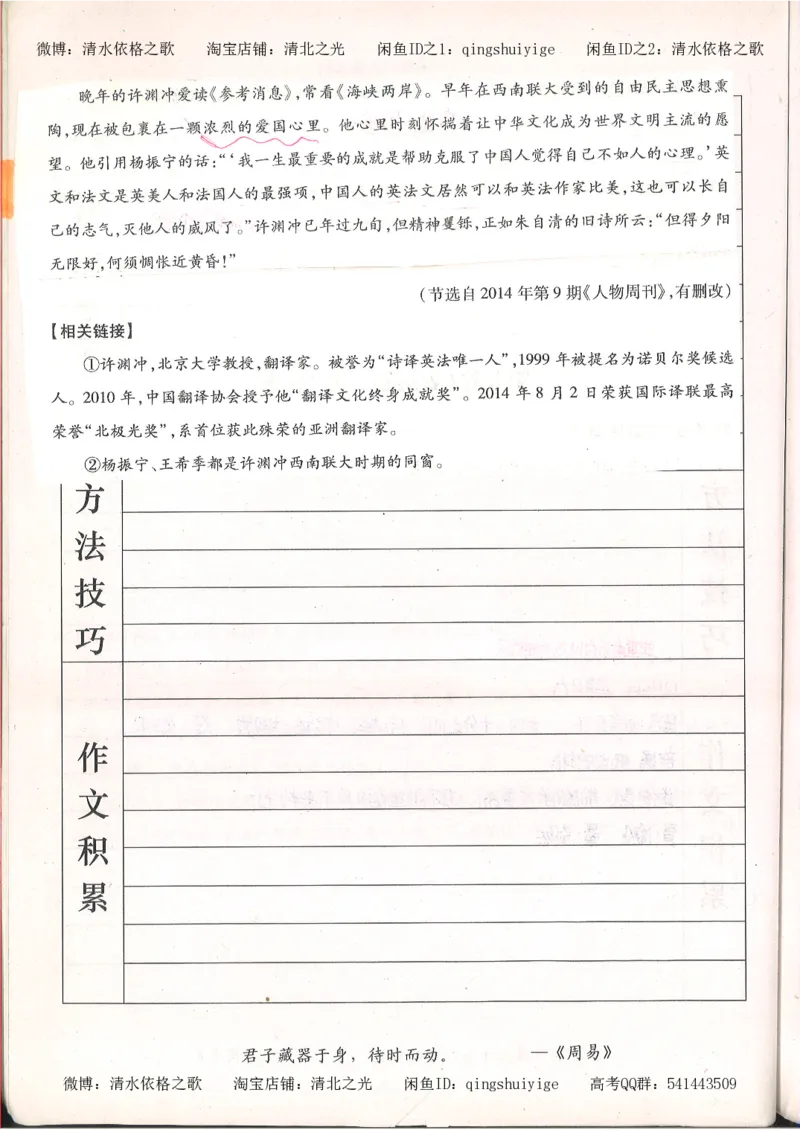 微博：清水依格之歌 淘宝店铺：清北之光 闲鱼ID之1：qingshuiyige 闲鱼ID之2：清水依格之歌
晚年的许渊冲爱读《参考消息》，常看《海峡两岸》。早年在西南联大受到的自由民主思想熏
陶，现在被包裹在一颗浓烈的爱国心里。他心里时刻怀揣着让中华文化成为世界文明主流的愿
望。他引用杨振宁的话：“‘我一生最重要的成就是帮助克服了中国人觉得自己不如人的心理。’英
文和法文是英美人和法国人的最强项，中国人的英法文居然可以和英法作家比美，这也可以长自
己的志气，灭他人的威风了。”许渊冲已年过九旬，但精神矍铄，正如朱自清的旧诗所云：“但得夕阳
无限好，何须惆怅近黄昏！”
（节选自2014年第9期《人物周刊》，有删改）
【相关链接】
①许渊冲，北京大学教授，翻译家。被誉为“诗译英法唯一人”，1999年被提名为诺贝尔奖候选
人。2010年，中国翻译协会授予他“翻译文化终身成就奖”。2014年8月2日荣获国际译联最高
荣誉“北极光奖”，系首位获此殊荣的亚洲翻译家。
②杨振宁、王希季都是许渊冲西南联大时期的同窗。
方法技巧
作文积累
君子藏器于身，待时而动。 —《周易》
微博：清水依格之歌 淘宝店铺：清北之光 闲鱼ID：qingshuiyige 高考QQ群：541443509